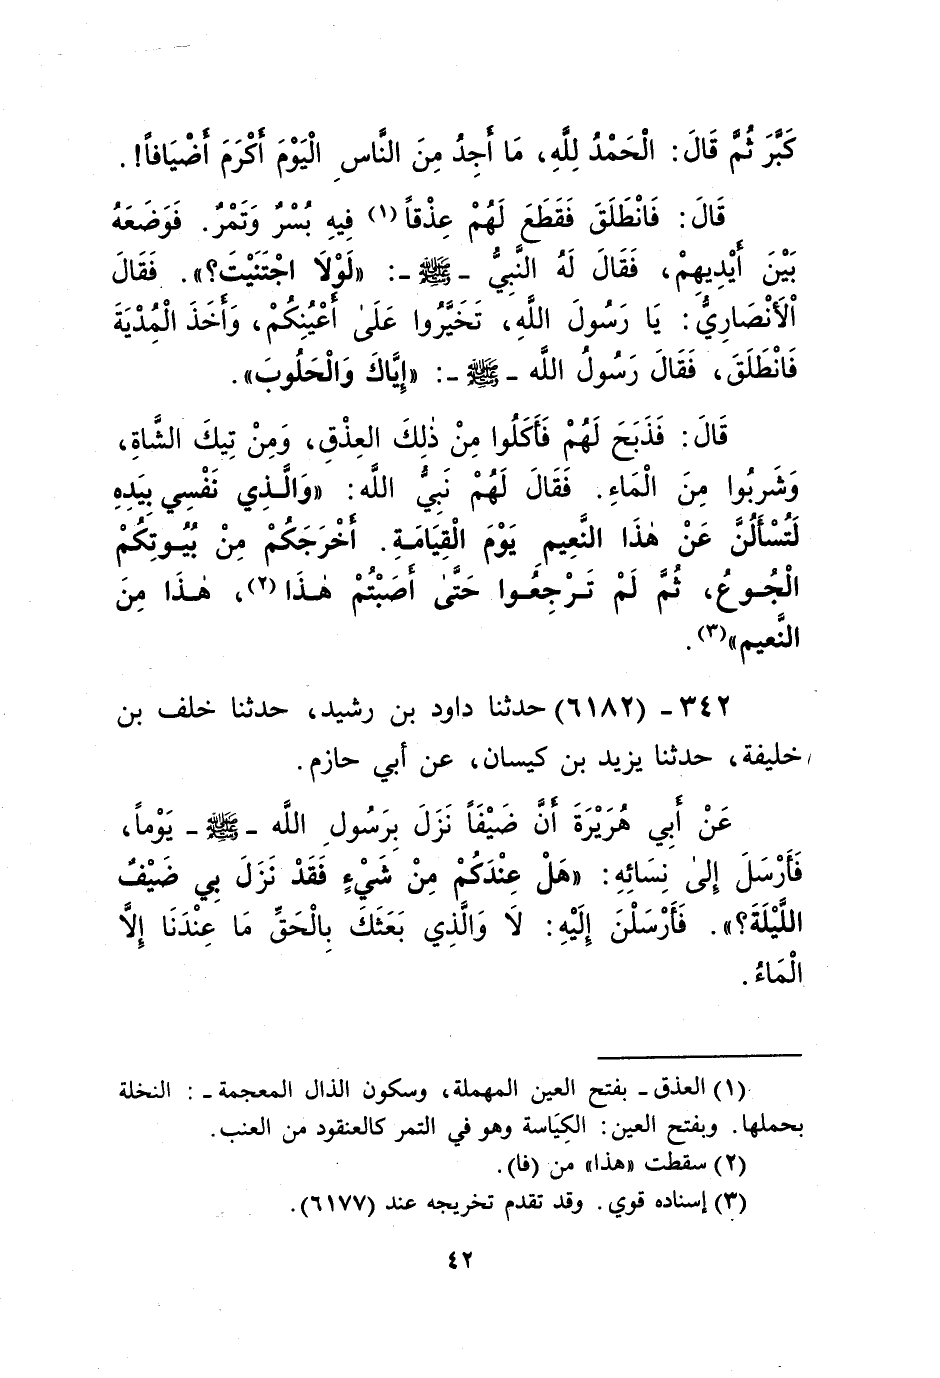 كَبَّرَ ثُمَّ قَالَ: الْحَمْدُ لِلَّهِ، مَا أَجِدُ مِنَ النَّاسِ الْيَوْمَ أَكْرَمَ أَضْيَافاً!.
قَالَ: فَانْطَلَقَ فَقَطَعَ لَهُمْ عِذْقاً(١) فِيهِ بُسْرٌ وَتَمْرٌ. فَوَضَعَهُ
بَيْنَ أَيْدِيهِمْ، فَقَالَ لَهُ النَّبِيُّ ـ ﷺ ـ: «لَوْلَا اجْتَنَيْتَ؟». فَقَالَ
الْأَنْصَارِيُّ: يَا رَسُولَ اللَّهِ، تَخَيَّرُوا عَلَىٰ أَعْيُنِكُمْ، وَأَخَذَ الْمُدْيَةَ
فَانْطَلَقَ، فَقَالَ رَسُولُ اللَّه ـ ﷺ ـ: «إِيَّاكَ وَالْحَلُوبَ».
قَالَ: فَذَبَحَ لَهُمْ فَأَكَلُوا مِنْ ذٰلِكَ العِذْقِ، وَمِنْ تِيكَ الشَّاةِ،
وَشَرِبُوا مِنَ الْمَاءِ. فَقَالَ لَهُمْ نَبِيُّ اللَّه: «وَالَّـذِي نَفْسِي بِيَدِهِ
لَتُسْأَلُنَّ عَنْ هٰذَا النَّعِيمِ يَوْمَ الْقِيَامَـةِ. أَخْرَجَكُمْ مِنْ بُيُـوتِكُمْ
الْجُـوعُ، ثُمَّ لَمْ تَـرْجِعُـوا حَتَّىٰ أَصَبْتُمْ هٰـذَا(٢)، هٰـذَا مِنَ
النَّعِيم»(٣).
٣٤٢ ـ (٦١٨٢) حدثنا داود بن رشيد، حدثنا خلف بن
خليفة، حدثنا يزيد بن كيسان، عن أبي حازم.
عَنْ أَبِي هُرَيْرَةَ أَنَّ ضَيْفَاً نَزَلَ بِرَسُولِ اللَّه ـ ﷺ ـ يَوْماً،
فَأَرْسَلَ إِلىٰ نِسَائِهِ: «هَلْ عِنْدَكُمْ مِنْ شَيْءٍ فَقَدْ نَزَلَ بِي ضَيْفٌ
اللَّيْلَةَ؟». فَأَرْسَلْنَ إِلَيْهِ: لَا وَالَّذِي بَعَثَكَ بِالْحَقِّ مَا عِنْدَنَا إِلَّا
الْمَاءُ.
(١) العذق ـ بفتح العين المهملة، وسكون الذال المعجمة ـ: النخلة
بحملها. وبفتح العين: الكِيَاسة وهو في التمر كالعنقود من العنب.
(٢) سقطت «هذا» من (فا).
(٣) إسناده قوي. وقد تقدم تخريجه عند (٦١٧٧).
٤٢